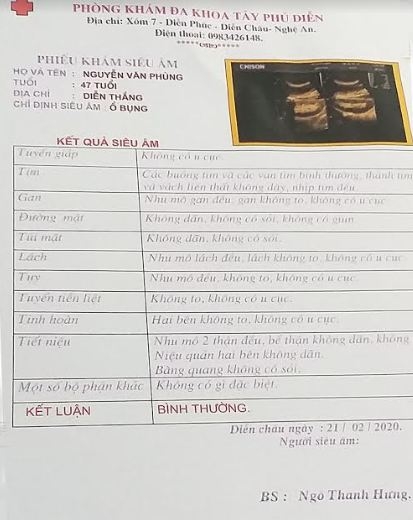 PHÒNG KHÁM ĐA KHOA TÂY PHỦ DIỄN
Địa chỉ: Xóm 7 - Diễn Phúc - Diễn Châu- Nghệ An.
Điện thoại: 0983426148.
PHIẾU KHÁM SIÊU ÂM
HỌ VÀ TÊN : NGUYỄN VĂN PHÙNG
TUỔI : 47 TUỔI
ĐỊA CHỈ : DIỄN THẮNG
CHỈ ĐỊNH SIÊU ÂM : Ổ BỤNG
CHISON
KẾT QUẢ SIÊU ÂM
Tuyến giáp Không có u cục.
Tim Các buồng tim và các van tim bình thường, thành tim
và vách liên thất không dày, nhịp tim đều.
Gan Nhu mô gan đều, gan không to, không có u cục
Đường mật Không dãn, không có sỏi, không có giun
Túi mật Không dãn, không có sỏi.
Lách Nhu mô lách đều, lách không to, không có u cục
Tụy Nhu mô đều, không to, không có u cục.
Tuyến tiền liệt Không to, không có u cục.
Tinh hoàn Hai bên không to, không có u cục.
Tiết niệu Nhu mô 2 thận đều, bể thận không dãn, không
Niệu quản hai bên không dãn.
Bàng quang không có sỏi.
Một số bộ phận khác Không có gì đặc biệt.
KẾT LUẬN BÌNH THƯỜNG.
Diễn châu ngày : 21/ 02 / 2020.
Người siêu âm:
BS : Ngô Thanh Hưng.